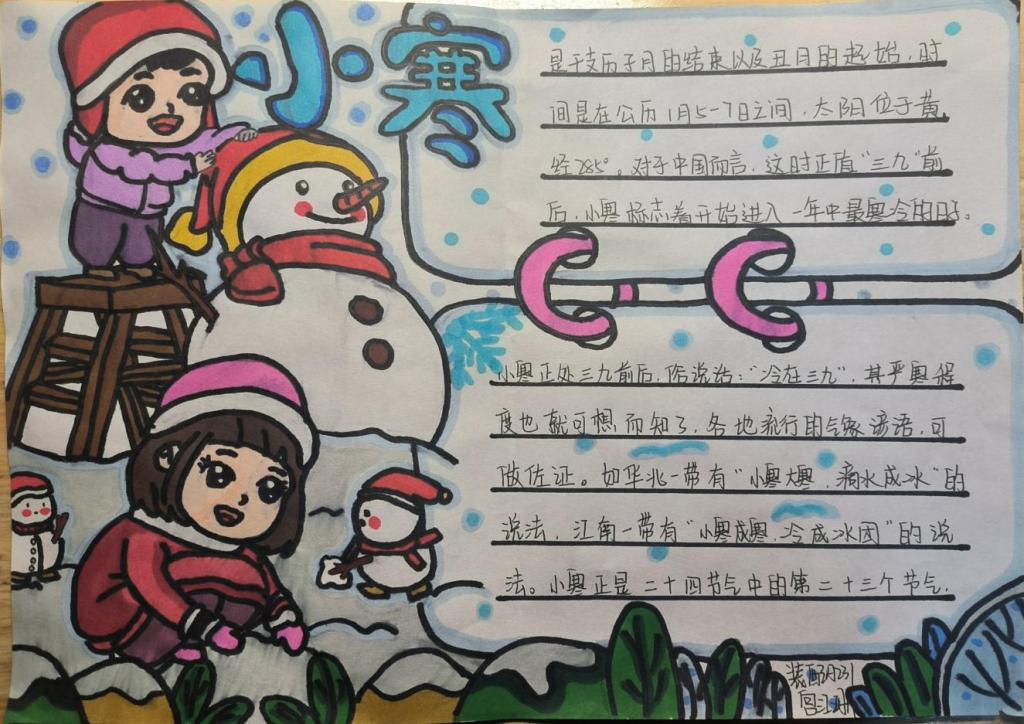 小寒
是干支历子月的结束以及丑月的起始，时
间是在公历1月5-7日之间，太阳位于黄
经285°。对于中国而言，这时正值“三九”前
后，小寒标志着开始进入一年中最寒冷的日子。
小寒正处三九前后，俗说话：“冷在三九”，其严寒程
度也就可想而知了，各地流行的气象谚语，可
做佐证。如华北一带有“小寒大寒，滴水成冰”的
说法，江南一带有“小寒成寒，冷成冰团”的说
法。小寒正是二十四节气中的第二十三个节气，
装配A231